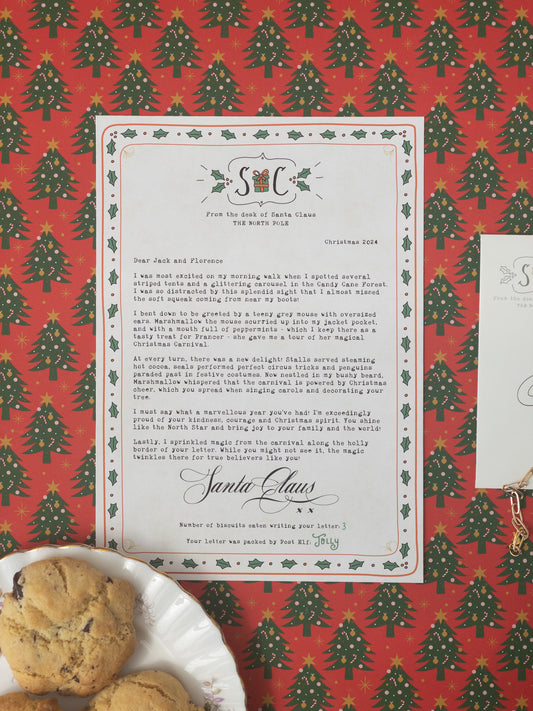 S C
From the desk of Santa Claus
THE NORTH POLE
Christmas 2024
Dear Jack and Florence
I was most excited on my morning walk when I spotted several
striped tents and a glittering carousel in the Candy Cane Forest.
I was so distracted by this splendid sight that I almost missed
the soft squeak coming from near my boots!
I bent down to be greeted by a teeny grey mouse with oversized
ears. Marshmallow the mouse scurried up into my jacket pocket,
and with a mouth full of peppermints - which I keep there as a
tasty treat for Prancer - she gave me a tour of her magical
Christmas Carnival.
At every turn, there was a new delight! Stalls served steaming
hot cocoa, seals performed perfect circus tricks and penguins
paraded past in festive costumes. Now nestled in my bushy beard,
Marshmallow whispered that the carnival is powered by Christmas
cheer, which you spread when singing carols and decorating your
tree.
I must say what a marvellous year you've had! I'm exceedingly
proud of your kindness, courage and Christmas spirit. You shine
like the North Star and bring joy to your family and the world!
Lastly, I sprinkled magic from the carnival along the holly
border of your letter. While you might not see it, the magic
twinkles there for true believers like you!
Santa Claus
x x
Number of biscuits eaten writing your letter: 3
Your letter was packed by Post Elf: Jolly
S
From the des
THE N